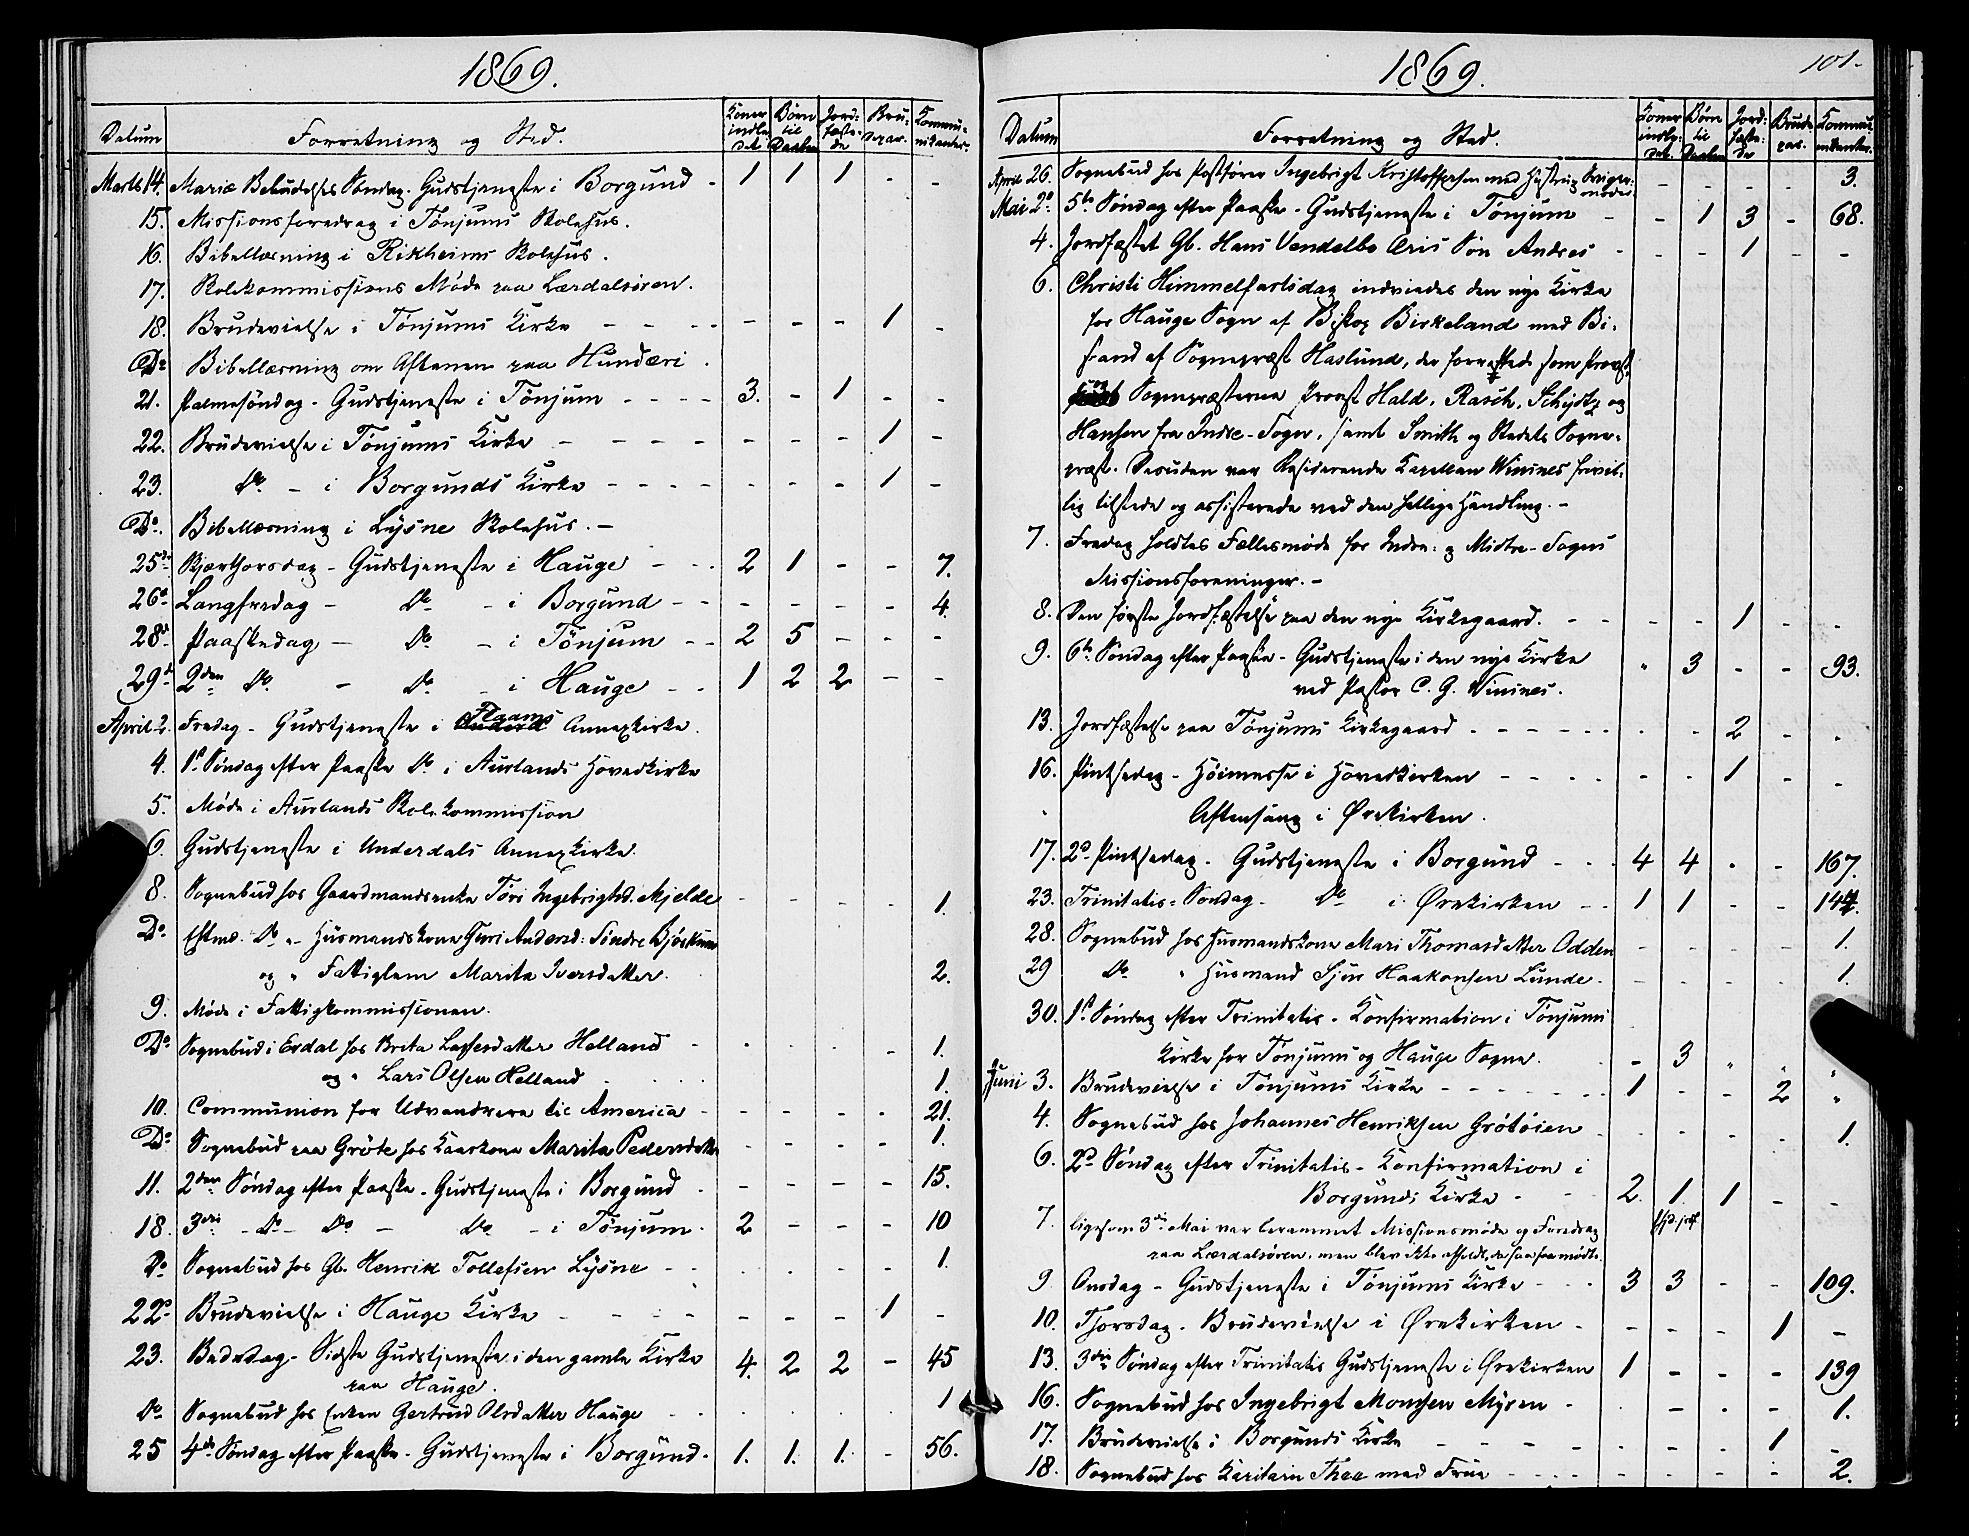 1869.
Datum Forretning og Sted. Koner indle- det Børn til Daaben Jord- fæste- de Bru- depar. Kommu- nikanter.
Marts 14. Mariæ Bebudelses Søndag. Gudstjeneste i Borgund - 1 1 1 - -
15. Missionsforedrag i Tønjums Skolehus.
16. Bibellæsning i Rikheims Skolehus.
17. Skolekommissions Møde paa Lærdalsøren.
18. Brudevielse i Tønjums Kirke - - - - - - - 1 -
Do Bibellæsning om Aftenen paa Hundæri.
21. Palmesøndag - Gudstjeneste i Tønjum - - - - 3. - 1 - -
22. Brudevielse i Tønjums Kirke - - - - - - - 1 -
23. Do - i Borgunds Kirke - - - - - - - 1 -
Do. Bibellæsning i Lysne Skolehus. -
25de Skjærthorsdag - Gudstjeneste i Hauge - - - 2 1 - - 7.
26d Langfredag - Do - i Borgund - - - - - - 4.
28d Paaskedag - Do - i Tønjum - - 2 5 - - -
29d 2den Do - Do - i Hauge - - 1 2 2 - -
April 2. Fredag - Gudstjeneste i Flaams Annexkirke.
4. 1ste Søndag efter Paaske Do i Aurlands Hovedkirke
5. Møde i Aurlands Skolekommission
6. Gudstjeneste i Underdals Annexkirke.
8. Sognebud hos Gaardmandsenke Tøri Ingebrigtsd. Mjelde - - - - 1.
Do. Eftmd. Do - Husmandskone Guri Andersd: Søndre Bjøskum
og " Fattiglem Marita Iversdatter. 2.
9. Møde i Fattigkommissionen.
Do Sognebud i Erdal hos Brita Lassesdatter Helland - - - - - 1.
og " Lars Olsen Helland - 1.
10. Communion for Udvandrere til America - - - - - 21.
Do. Sognebud paa Grøte hos Kaarkone Marita Pedersdatter - - - - 1.
11. 2den Søndag efter Paaske - Gudstjeneste i Borgund - - - - - 15.
18. 3die - Do - Do - Do - i Tønjum. 2 - - - 10
Do Sognebud hos Gb. Henrik Tollefsen Lysne - - - - - - 1.
22d Brudevielse i Hauge Kirke - - - - - - 1 -
23. Bededag - Sidste Gudstjeneste i den gamle Kirke 4. 2 2 - 45
paa Hauge.
Do Sognebud hos Enken Gertrud Olsdatter Hauge 1
25 4de Søndag efter Paaske - Gudstjeneste i Borgund - 1. 1. 1. - 56.
1869. 101.
Datum Forretning og Sted. Koner indle- det. Børn til Daaben Jord- fæste- de Brude- par. Kommu- nikanter.
April 26. Sognebud hos Postfører Ingebrigt Kristoffersen med Hustru og Sviger- moder - - - - 3.
Mai 2d 5te Søndag efter Paaske - Gudstjeneste i Tønjum - - 1 3 - 68.
4. Jordfæstet Gb. Hans Vendelbo Øris Søn Andres - - - 1 - -
6. Christi Himmelfartsdag indviedes den nye Kirke
for Hauge Sogn af Biskop Birkeland med Bi-
stand af Sognepræst Haslund, der forrettede som Provst
og Sognepræsterne Provst Hald, Rasch, Schjøtz og
Hansen fra Indre-Sogn, samt Smith og Stedets Sogne-
præst. Desuden var Residerende Kapellan Winsnes frivil-
lig tilstede og assisterede ved den hellige Handling. -
7. Fredag holdtes Fællesmøde for Indre- og Midtre-Sogns
Missionsforeninger. -
8. Den første Jordfæstelse paa den nye Kirkegaard. - - - - 1 - -
9. 6te Søndag efter Paaske - Gudstjeneste i den nye Kirke " 3 - - 93.
ved Pastor C. G. Winsnes.
13. Jordfæstelse paa Tønjums Kirkegaard - - - - - - 2 - -
16. Pintsedag - Høimesse i Hovedkirken - - - - - - 1 - -
Aftensang i Ørekirken.
17. 2d Pintsedag - Gudstjeneste i Borgund - - - 4 4 - - 167.
23. Trinitatis-Søndag - Do i Ørekirken - - 1 1 - - 144.
28. Sognebud hos Husmandskone Mari Thomasdatter Odden - - - - 1.
29 Do " Husmand Sjur Haakonsen Lunde. - - - - 1.
30. 1ste Søndag efter Trinitatis - Konfirmation i Tønjums
Kirke for Tønjums og Hauge Sogne. - 3 " " "
Juni 3. Brudevielse i Tønjums Kirke - - - - - 1 - - 2 "
4. Sognebud hos Johannes Henriksen Grøtøien - - - - - 1.
6. 2d Søndag efter Trinitatis - Konfirmation i
Borgunds Kirke - - - 2. 1. 1 - -
7. ligesom 3die Mai var berammet Missionsmøde og Foredrag
paa Lærdalsøren, men blev ikke afholdt, da saa faa mødte.
9. Onsdag - Gudstjeneste i Tønjums Kirke - - - 3 3 - - 109.
10. Thorsdag - Brudevielse i Ørekirken - - - - 1 -
13. 3die Søndag efter Trinitatis Gudstjeneste i Ørekirken 1 - - - 139
16. Sognebud hos Ingebrigt Monsen Myren - - - - 1.
17. Brudevielse i Borgunds Kirke - - - - - - - 1 -
18. Sognebud hos Kaptain Thee med Frue - - - - - - - 2.